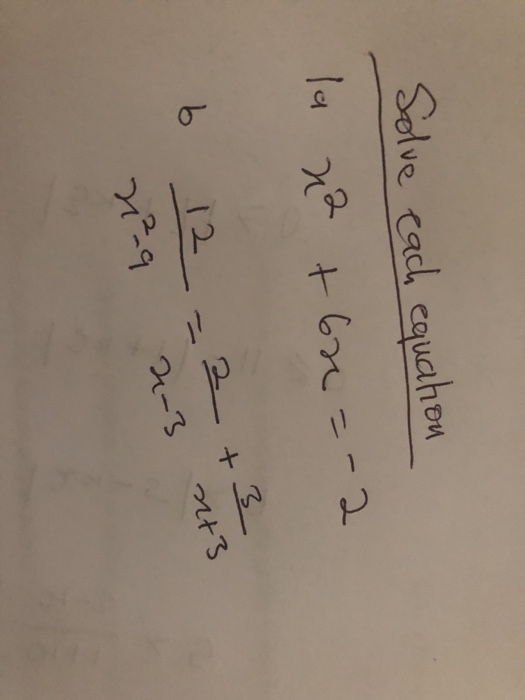 Solve each equation
1a x² + 6x = -2
b 12/x²-9 = 2/x-3 + 3/x+3